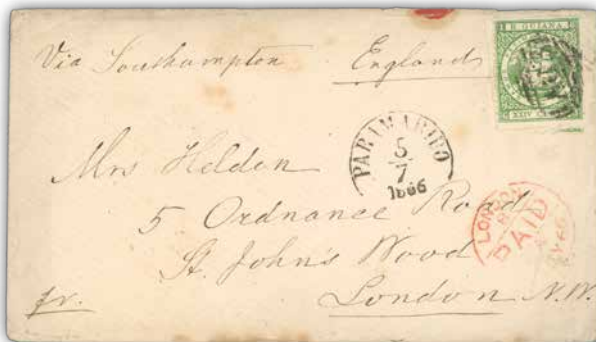 B. GUIANA
Via Southampton England
XXIV
PARAMARIBO
5
7
1866
Mrs Heldon
5 Ordnance Road
St. John's Wood
London N.W.
pr.
LONDON
PAID